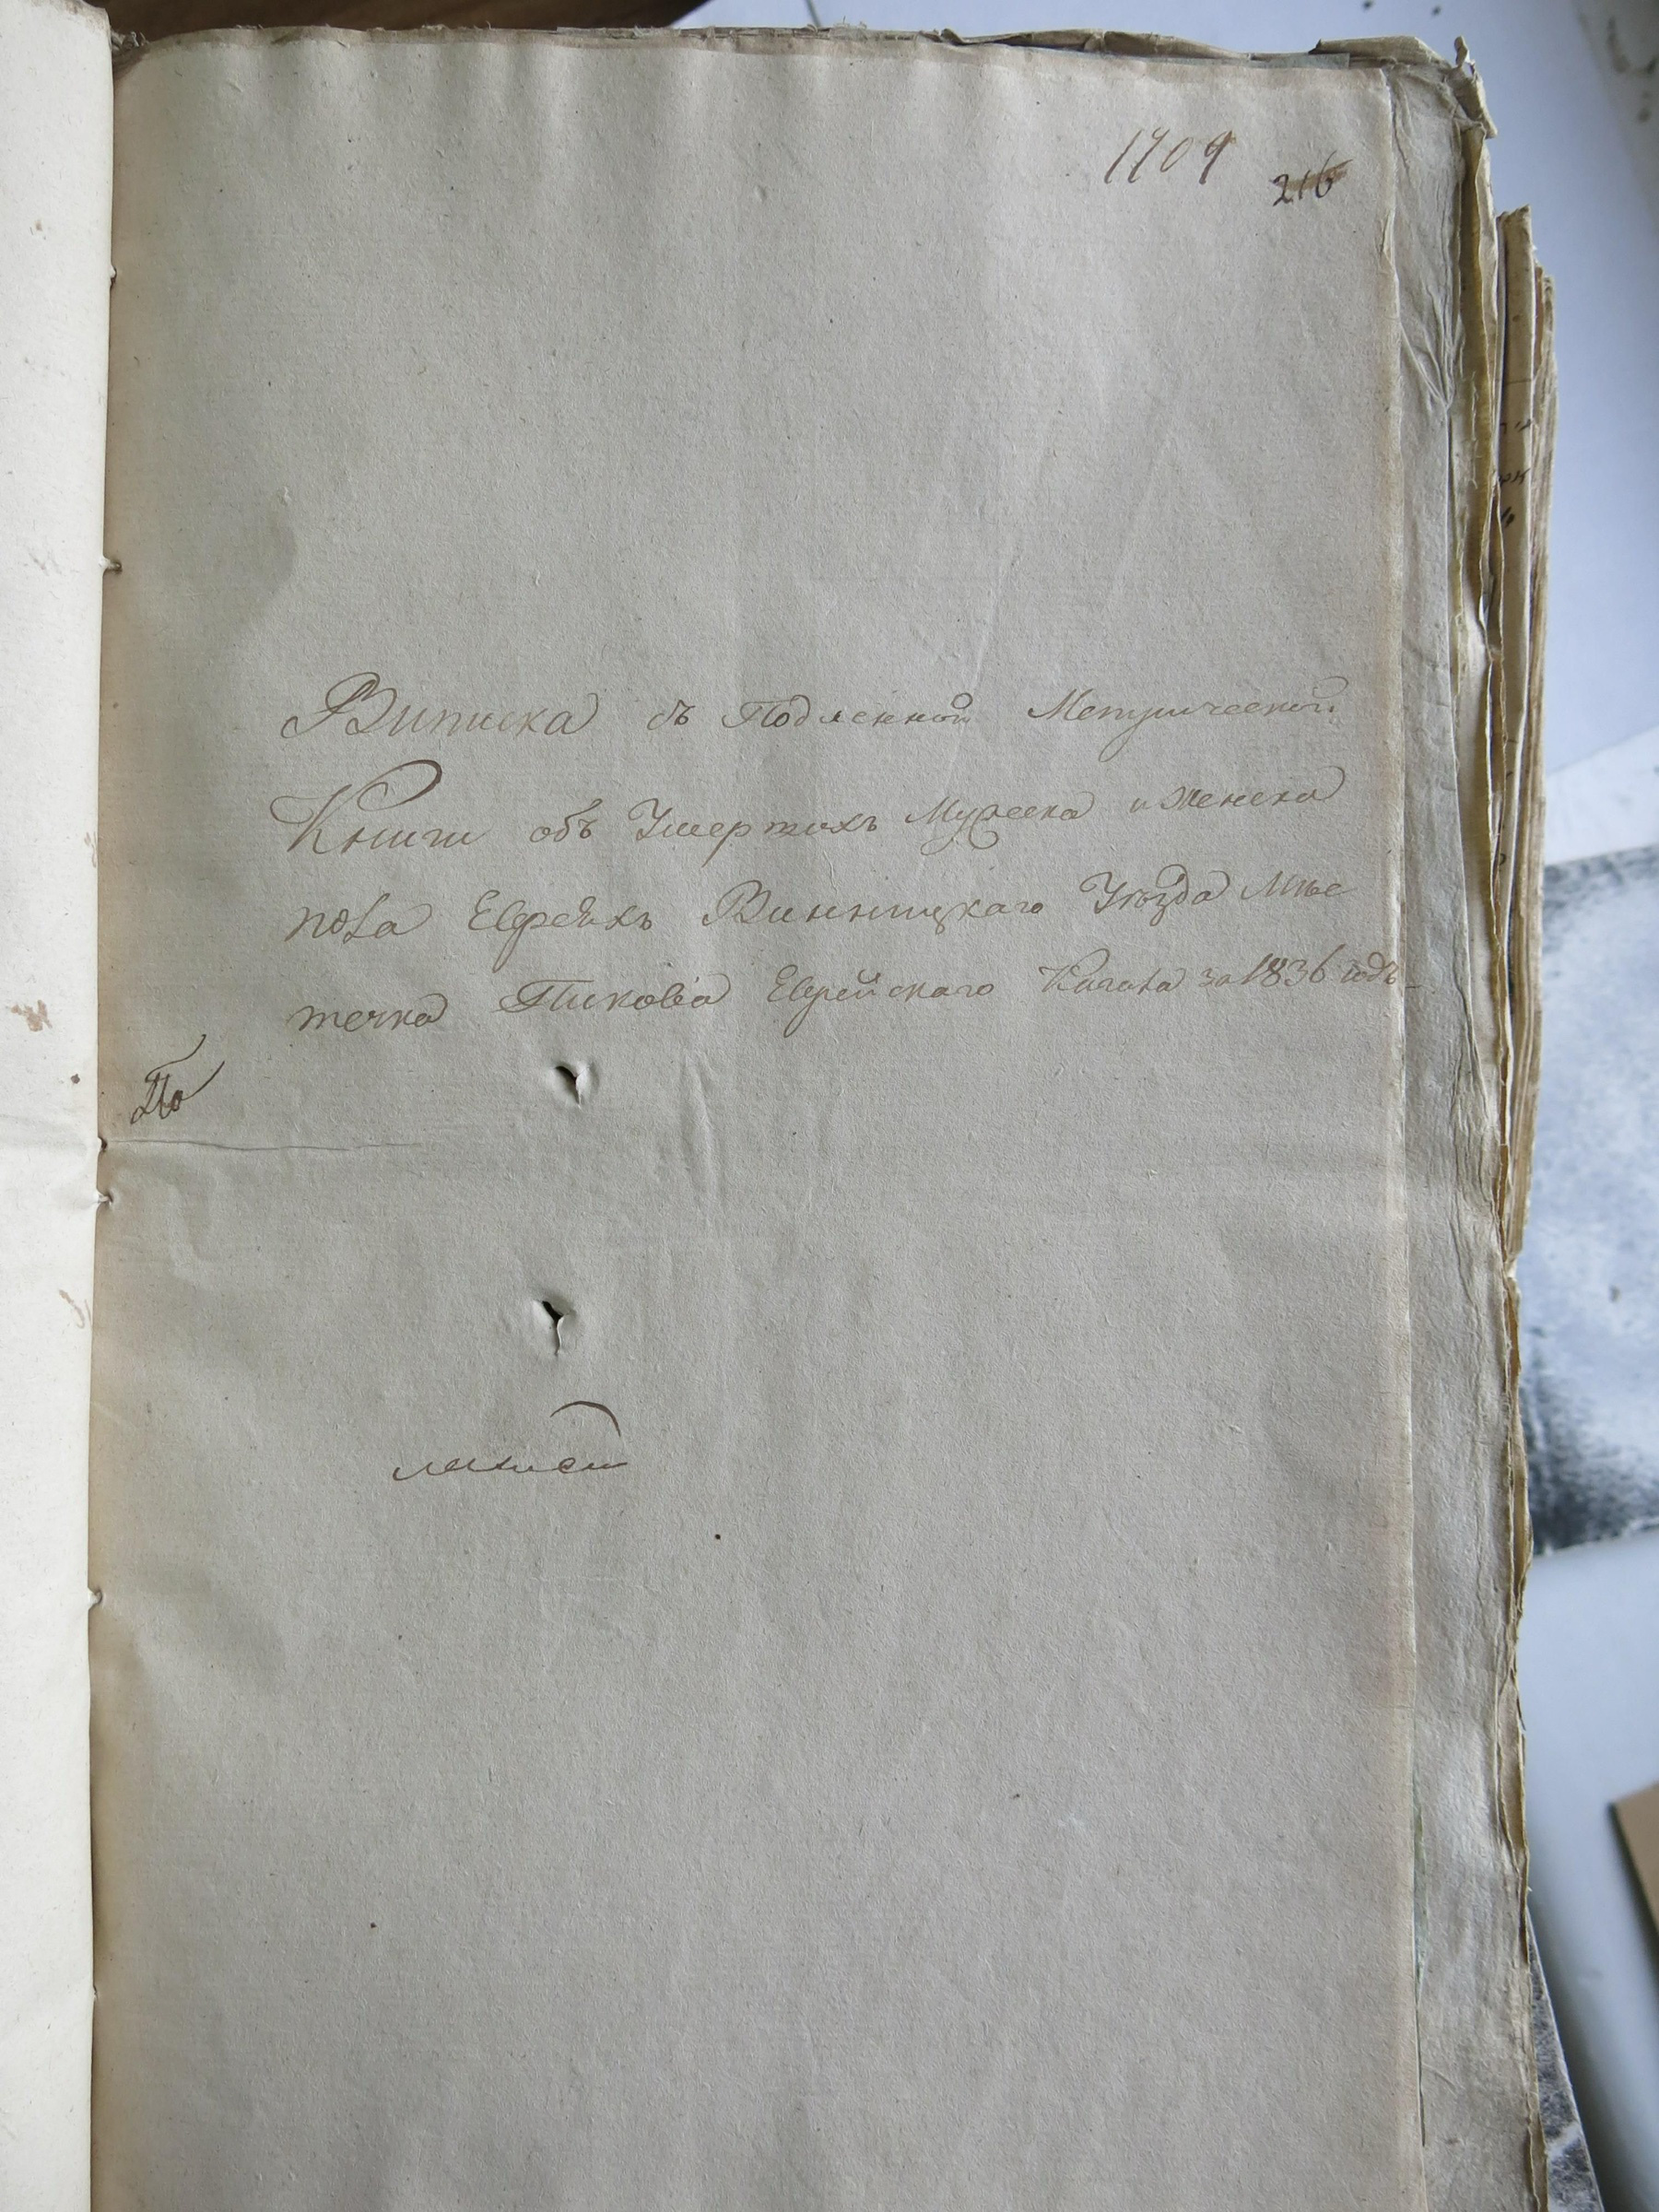 1909
216
Виписка съ Подленной Метрической
Книги объ Умертихъ Мужеска и Женска
пола Евреяхъ Винницкаго Уѣзда Мѣс
течка Пикова Еврейскаго Кагала за 1836 годъ
По